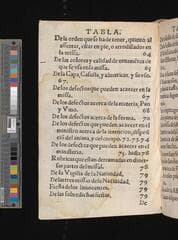 TABLA.
De la orden que se ha de tener, quanto al
assentar, estar en pie, o arrodillados en
la missa. 64
De los colores y calidad de ornamẽtos cõ
que se vsa en la missa. 65
De la Capa, Casulla, y almaticas, y su vso
67.
De los defectos que puedẽ acaecer en la
missa. 70
De los defectos acerca de la materia, Pan
y Vino. 70
De los defectos acerca de la forma. 70
De los defectos que pueden acaecer en el
ministro acerca de la intencion,
del anima, y del cuerpo. 72.73.74
De los defectos que puedẽ acaecer en el
misterio. 76
Rubricas que estan derramadas en diuer
sas partes del missal. 78
De la Vigilia de la Natiuidad. 79
De las tres missas de la Natiuidad. 79
Fiesta de los Innocentes. 79
De las sobredichas fiestas. 79
De